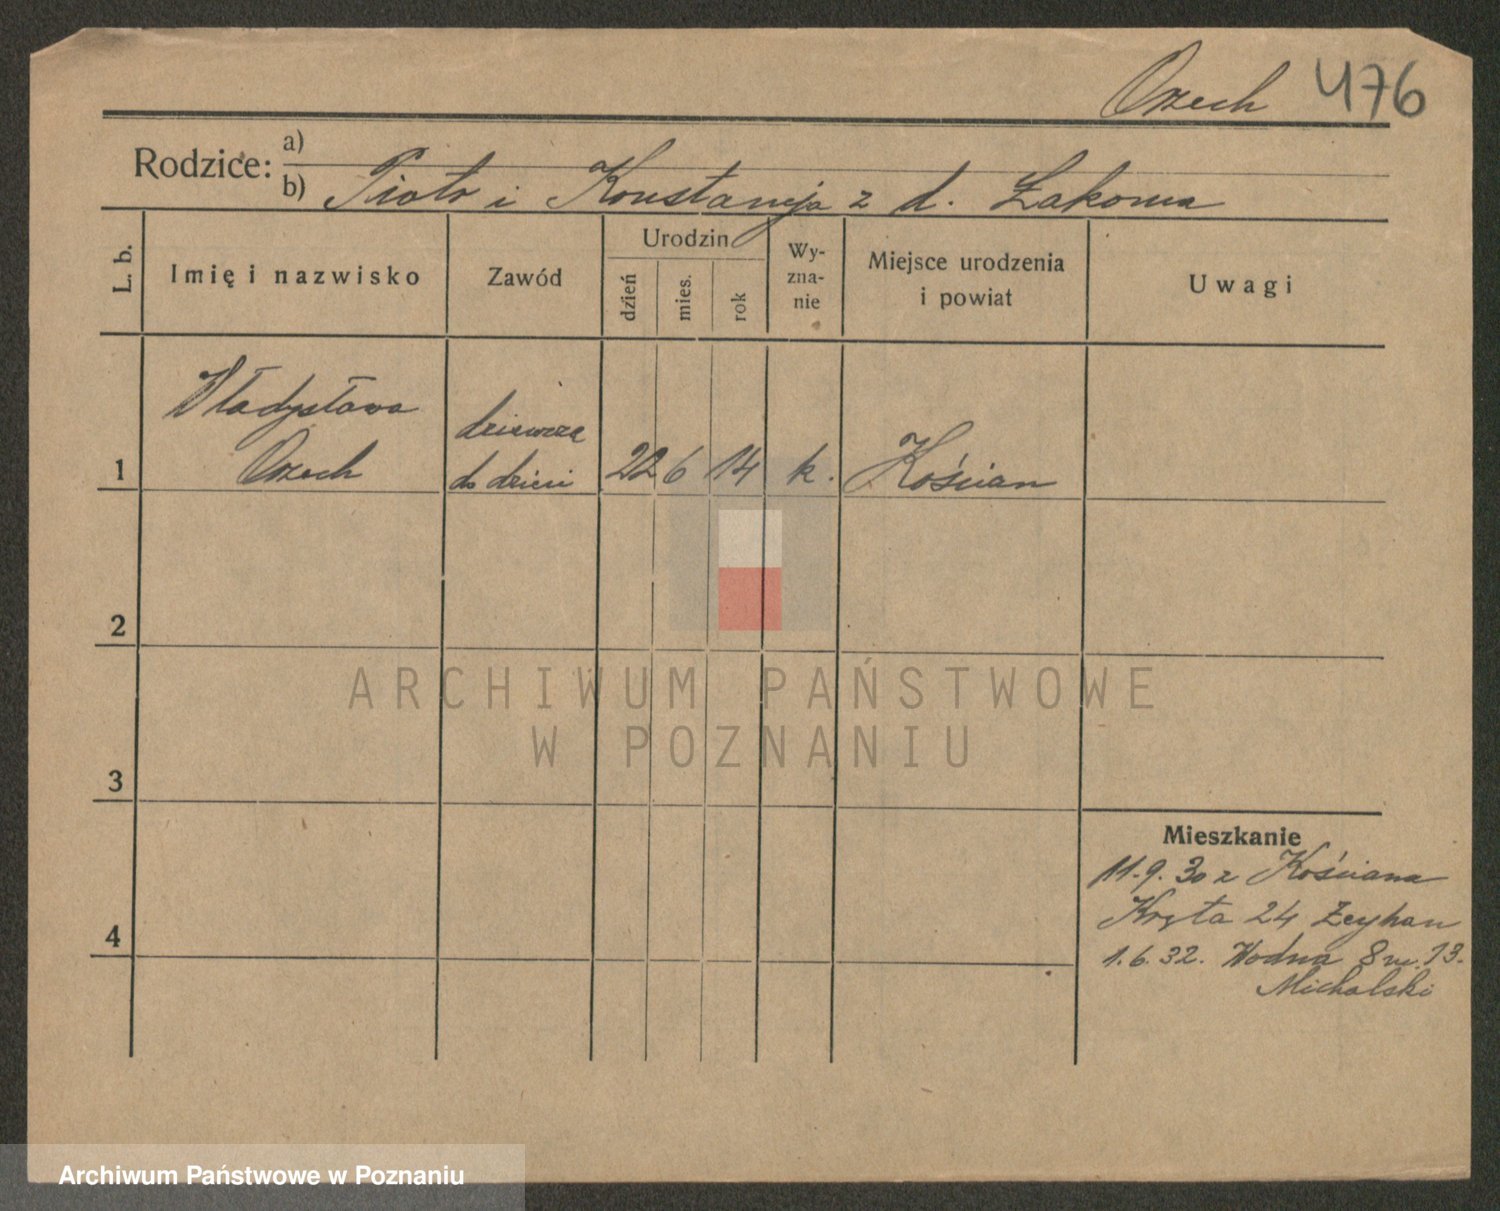 Orzech 476
Rodzice: a)
b) Piotr i Konstancja z d. Żakowa
L. b.
Imię i nazwisko
Zawód
Urodzin
dzień
mies.
rok
Wy-
zna-
nie
Miejsce urodzenia
i powiat
Uwagi
Władysława
Orzech
dziewczę
do dzieci
1
22 6 14 k. Kościan
2
ARCHIWUM PAŃSTWOWE
W POZNANIU
3
4
Mieszkanie
11.9.30 z Kościana
Kręta 24 Zeyhan
1.6.32. Wodna 8 m. 13.
Michalski
Archiwum Państwowe w Poznaniu